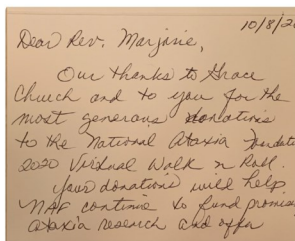 10/8/20
Dear Rev. Marjorie,
Our thanks to Grace
Church and to you for the
most generous donations
to the National Ataxia
2020 Virtual Walk n Roll.
Your donations will help
NAF continue to fund
ataxia research and offer